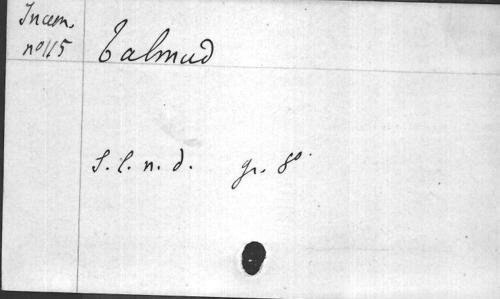 Incun.
nº 115
Talmud
S. l. n. d. gr. 8º.